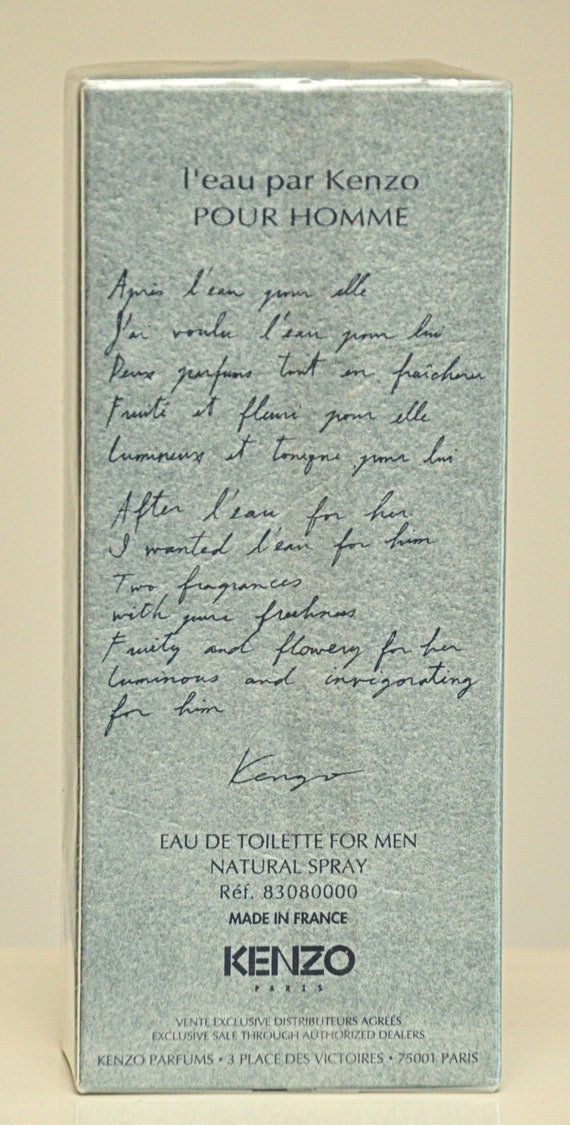 l'eau par Kenzo
POUR HOMME
Après l'eau pour elle
J'ai voulu l'eau pour lui
Deux parfums tout en fraîcheur
Fruité et fleuri pour elle
Lumineux et tonique pour lui
After l'eau for her
I wanted l'eau for him
Two fragrances
with pure freshness
Fruity and flowery for her
Luminous and invigorating
for him
Kenzo
EAU DE TOILETTE FOR MEN
NATURAL SPRAY
Réf. 83080000
MADE IN FRANCE
KENZO
PARIS
VENTE EXCLUSIVE DISTRIBUTEURS AGRÉÉS
EXCLUSIVE SALE THROUGH AUTHORIZED DEALERS
KENZO PARFUMS • 3 PLACE DES VICTOIRES • 75001 PARIS